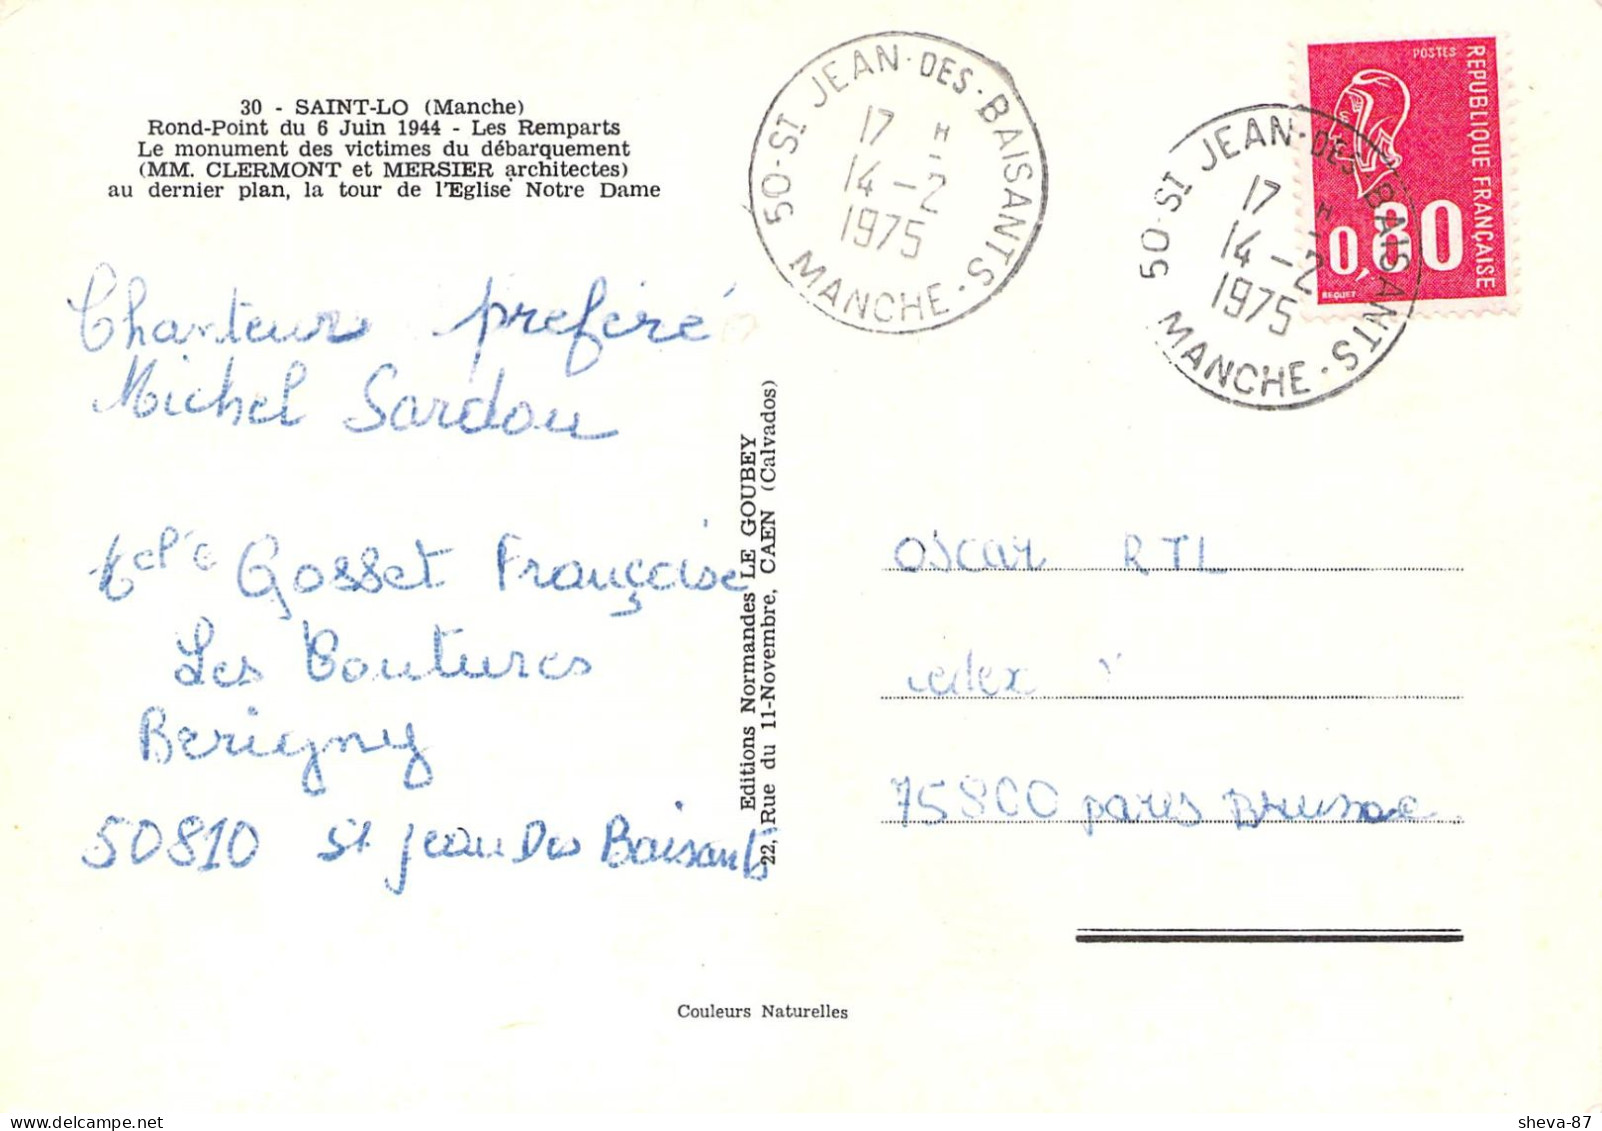 30 - SAINT-LO (Manche)
Rond-Point du 6 Juin 1944 - Les Remparts
Le monument des victimes du débarquement
(MM. CLERMONT et MERSIER architectes)
au dernier plan, la tour de l'Eglise Notre Dame
Chanteur preferé
Michel Sardou
Gosset Françoise
Les Coutures
Berigny
50810 St Jean Des Baisants
Editions Normandes LE GOUBEY
22, Rue du 11-Novembre, CAEN (Calvados)
50-ST JEAN-DES-BAISANTS-
MANCHE
17 H
14-2
1975
50-ST JEAN-DES-BAISANTS-
MANCHE
17 H
14-2
1975
POSTES
REPUBLIQUE FRANÇAISE
0,80
BEQUET
Oscar RTL
cedex
75800 paris Brune
Couleurs Naturelles
sheva-87